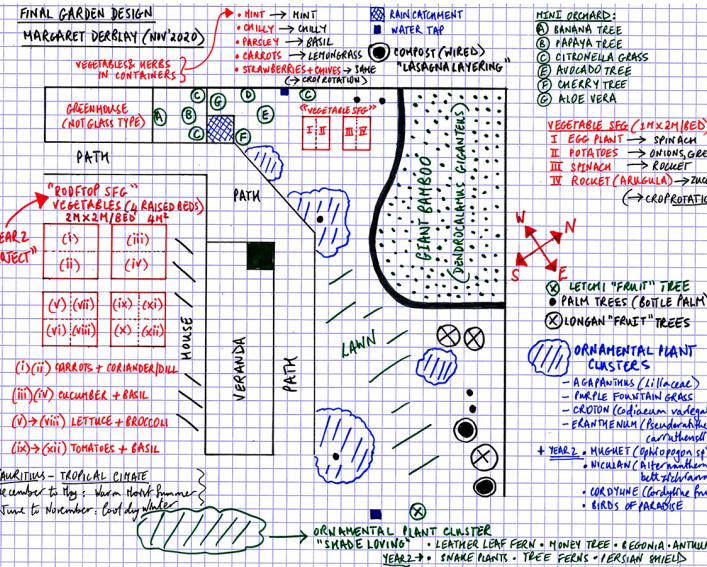 FINAL GARDEN DESIGN
MARGARET DERBLAY (NOV'2020)
VEGETABLES & HERBS
IN CONTAINERS
• MINT → MINT
• CHILLY → CHILLY
• PARSLEY → BASIL
• CARROTS → LEMONGRASS
• STRAWBERRIES + CHIVES → SAME
(→ CROP ROTATION)
RAIN CATCHMENT
WATER TAP
COMPOST (WIRED)
"LASAGNA LAYERING"
MINI ORCHARD:
A BANANA TREE
B PAPAYA TREE
C CITRONELLA GRASS
E AVOCADO TREE
F CHERRY TREE
G ALOE VERA
GREENHOUSE
(NOT GLASS TYPE)
A
B
C
G
D
E
C
C
F
"VEGETABLE SFG"
I II
III IV
VEGETABLE SFG (1M X 2M/BED)
I EGG PLANT → SPINACH
II POTATOES → ONIONS, GRE
III SPINACH → ROCKET
IV ROCKET (ARUGULA) → ZUC
(→ CROP ROTATION
PATH
PATH
GIANT BAMBOO
(DENDROCALAMUS GIGANTEUS)
"ROOFTOP SFG"
VEGETABLES (4 RAISED BEDS)
2M X 2M/BED 4M²
EAR 2
OJECT"
(i)
(iii)
(ii)
(iv)
(v) (vii)
(ix) (xi)
(vi) (viii)
(x) (xii)
W
N
S
E
LETCHI "FRUIT" TREE
PALM TREES (BOTTLE PALM
LONGAN "FRUIT" TREES
HOUSE
VERANDA
PATH
LAWN
ORNAMENTAL PLANT
CLUSTERS
– AGAPANTHUS (Lillaceae)
– PURPLE FOUNTAIN GRASS
– CROTON (Codiaeum variega
– ERANTHEMUM (Pseuderanthe
+ YEAR 2 • MUGUET (Ophiopogon sp
• CORDYLINE (Cordyline fru
• BIRDS OF PARADISE
(i)(ii) CARROTS + CORIANDER/DILL
(iii)(iv) CUCUMBER + BASIL
(v) → (viii) LETTUCE + BROCCOLI
(ix) → (xii) TOMATOES + BASIL
AURITIUS – TROPICAL CLIMATE
ecember to May: Warm Moist Summer
June to November: Cool dry Winter
ORNAMENTAL PLANT CLUSTER
"SHADE LOVING" • LEATHER LEAF FERN • MONEY TREE • BEGONIA • ANTHU
YEAR 2 → • SNAKE PLANTS • TREE FERNS • PERSIAN SHIELD